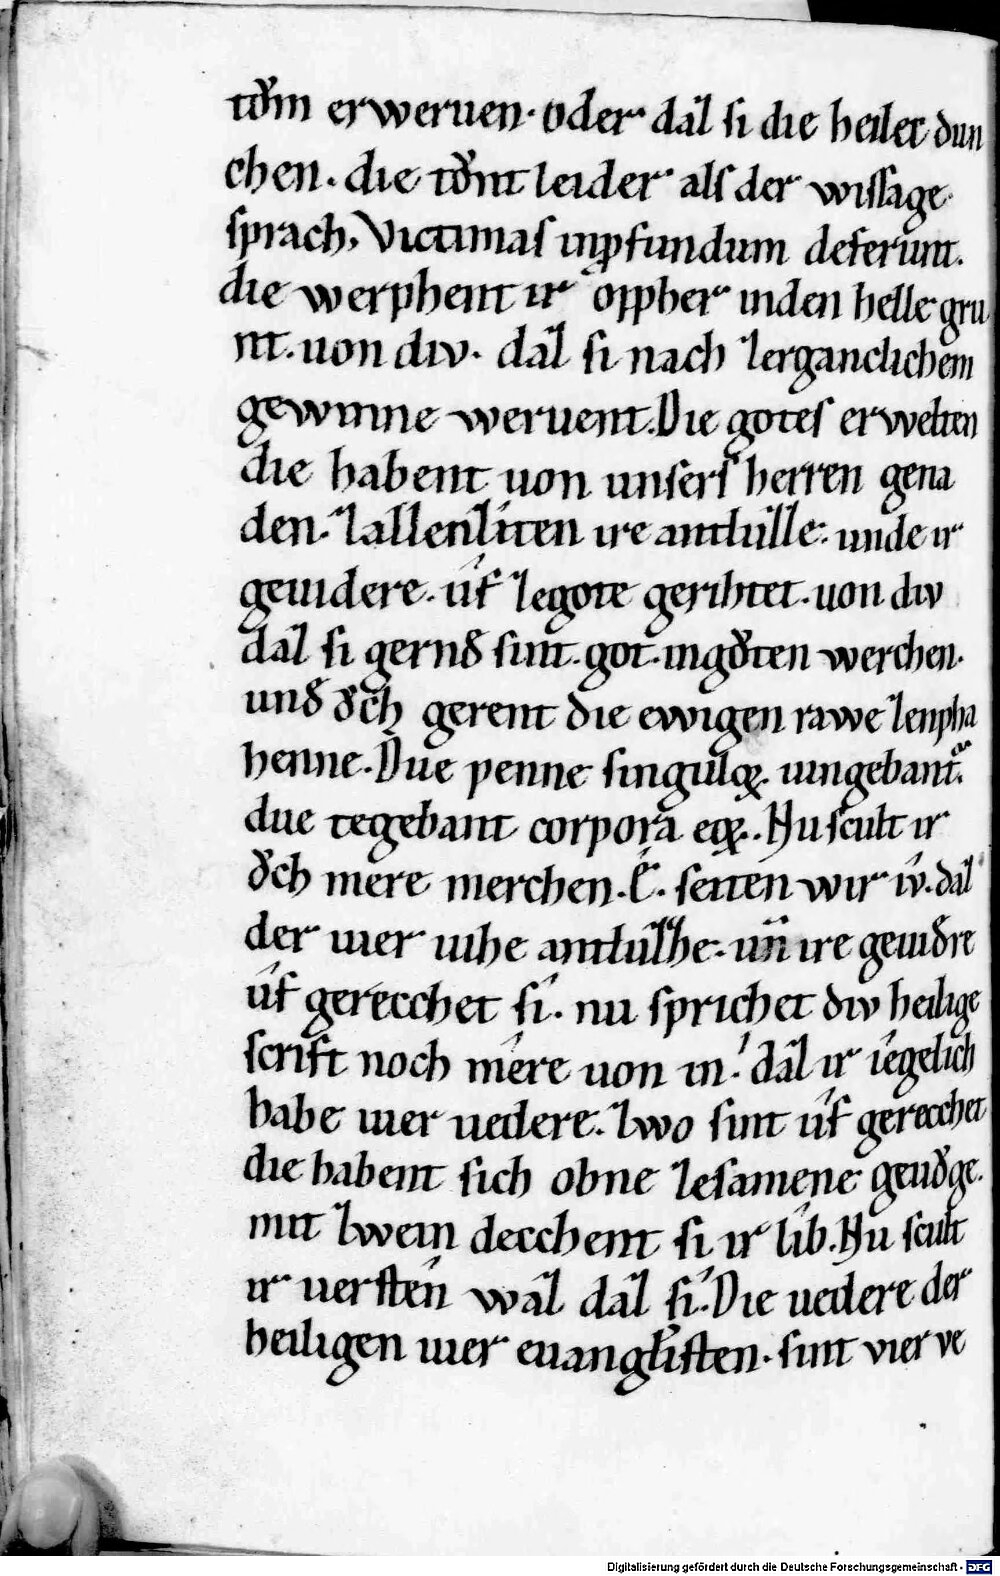 tv̊m erweruen· oder daʒ si die heilec dun
chen. die tv̊nt leider als der wissage
sprach, Victimas inꝓfundum deferunt.
die werphent ir oppher inden helle gru
nt. uon div. daʒ si nach ʒerganclichem
gewinne weruent. Die gotes erwelten
die habent uon unsers herren gena
den. ʒallenʒiten ire antlulle. unde ir
geuidere. úf ʒegote gerihtet. uon div
daʒ si gernδ sint. got. ingv̊ten werchen.
unδ ǒch gerent die ewigen rawe ʒenpha
henne. Due penne singuloꝝ iungebantᷓ.
due tegebant corpora eoꝝ. Nu scult ir
ǒch mere merchen. É. seiten wir ív. daʒ
der uier uihe antluʒhe. uñ ire geuiδre
úf gerecchet sí. nu sprichet div heilige
scrift noch mére uon in. daʒ ir íegelich
habe uier uedere. ʒwo sint úf gerecchet
die habent sich obne ʒesamene geuǒge.
mit ʒwein decchent si ir lib. Nu scult
ir uersten waʒ daʒ sí. Die uedere der
heiligen uier euangłisten. sint vier ve
Digitalisierung gefördert durch die Deutsche Forschungsgemeinschaft - DFG